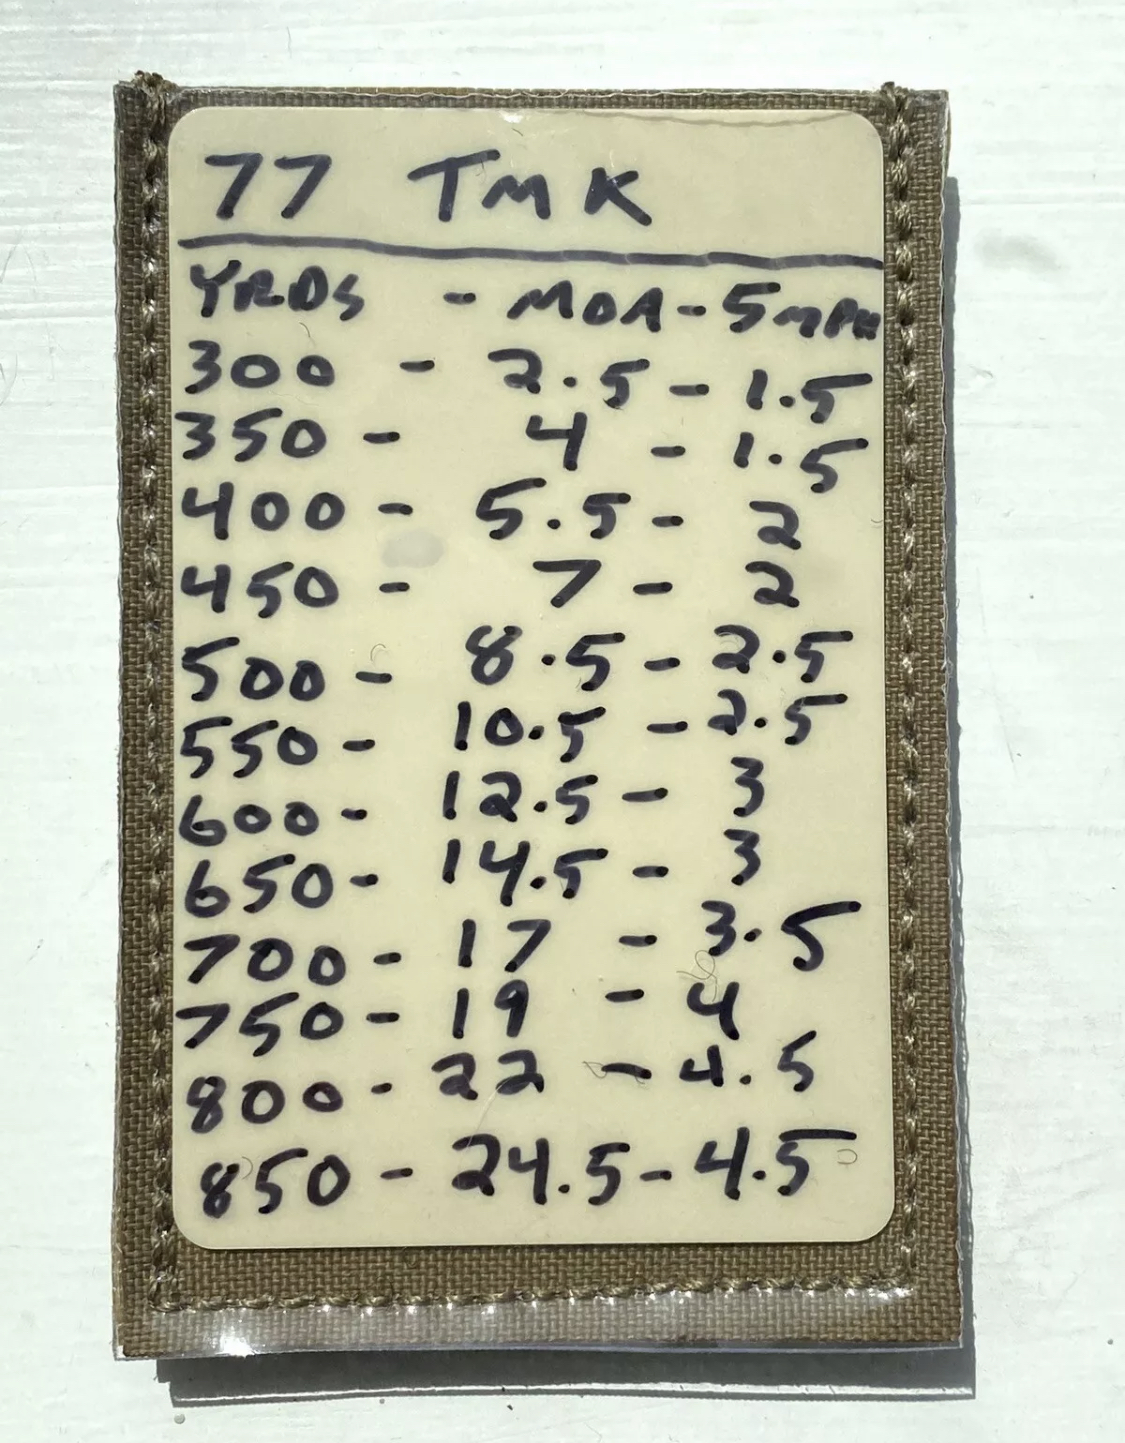 77 TMK
YRDS - MOA - 5mPH
300 - 2.5 - 1.5
350 - 4 - 1.5
400 - 5.5 - 2
450 - 7 - 2
500 - 8.5 - 2.5
550 - 10.5 - 2.5
600 - 12.5 - 3
650 - 14.5 - 3
700 - 17 - 3.5
750 - 19 - 4
800 - 22 - 4.5
850 - 24.5 - 4.5